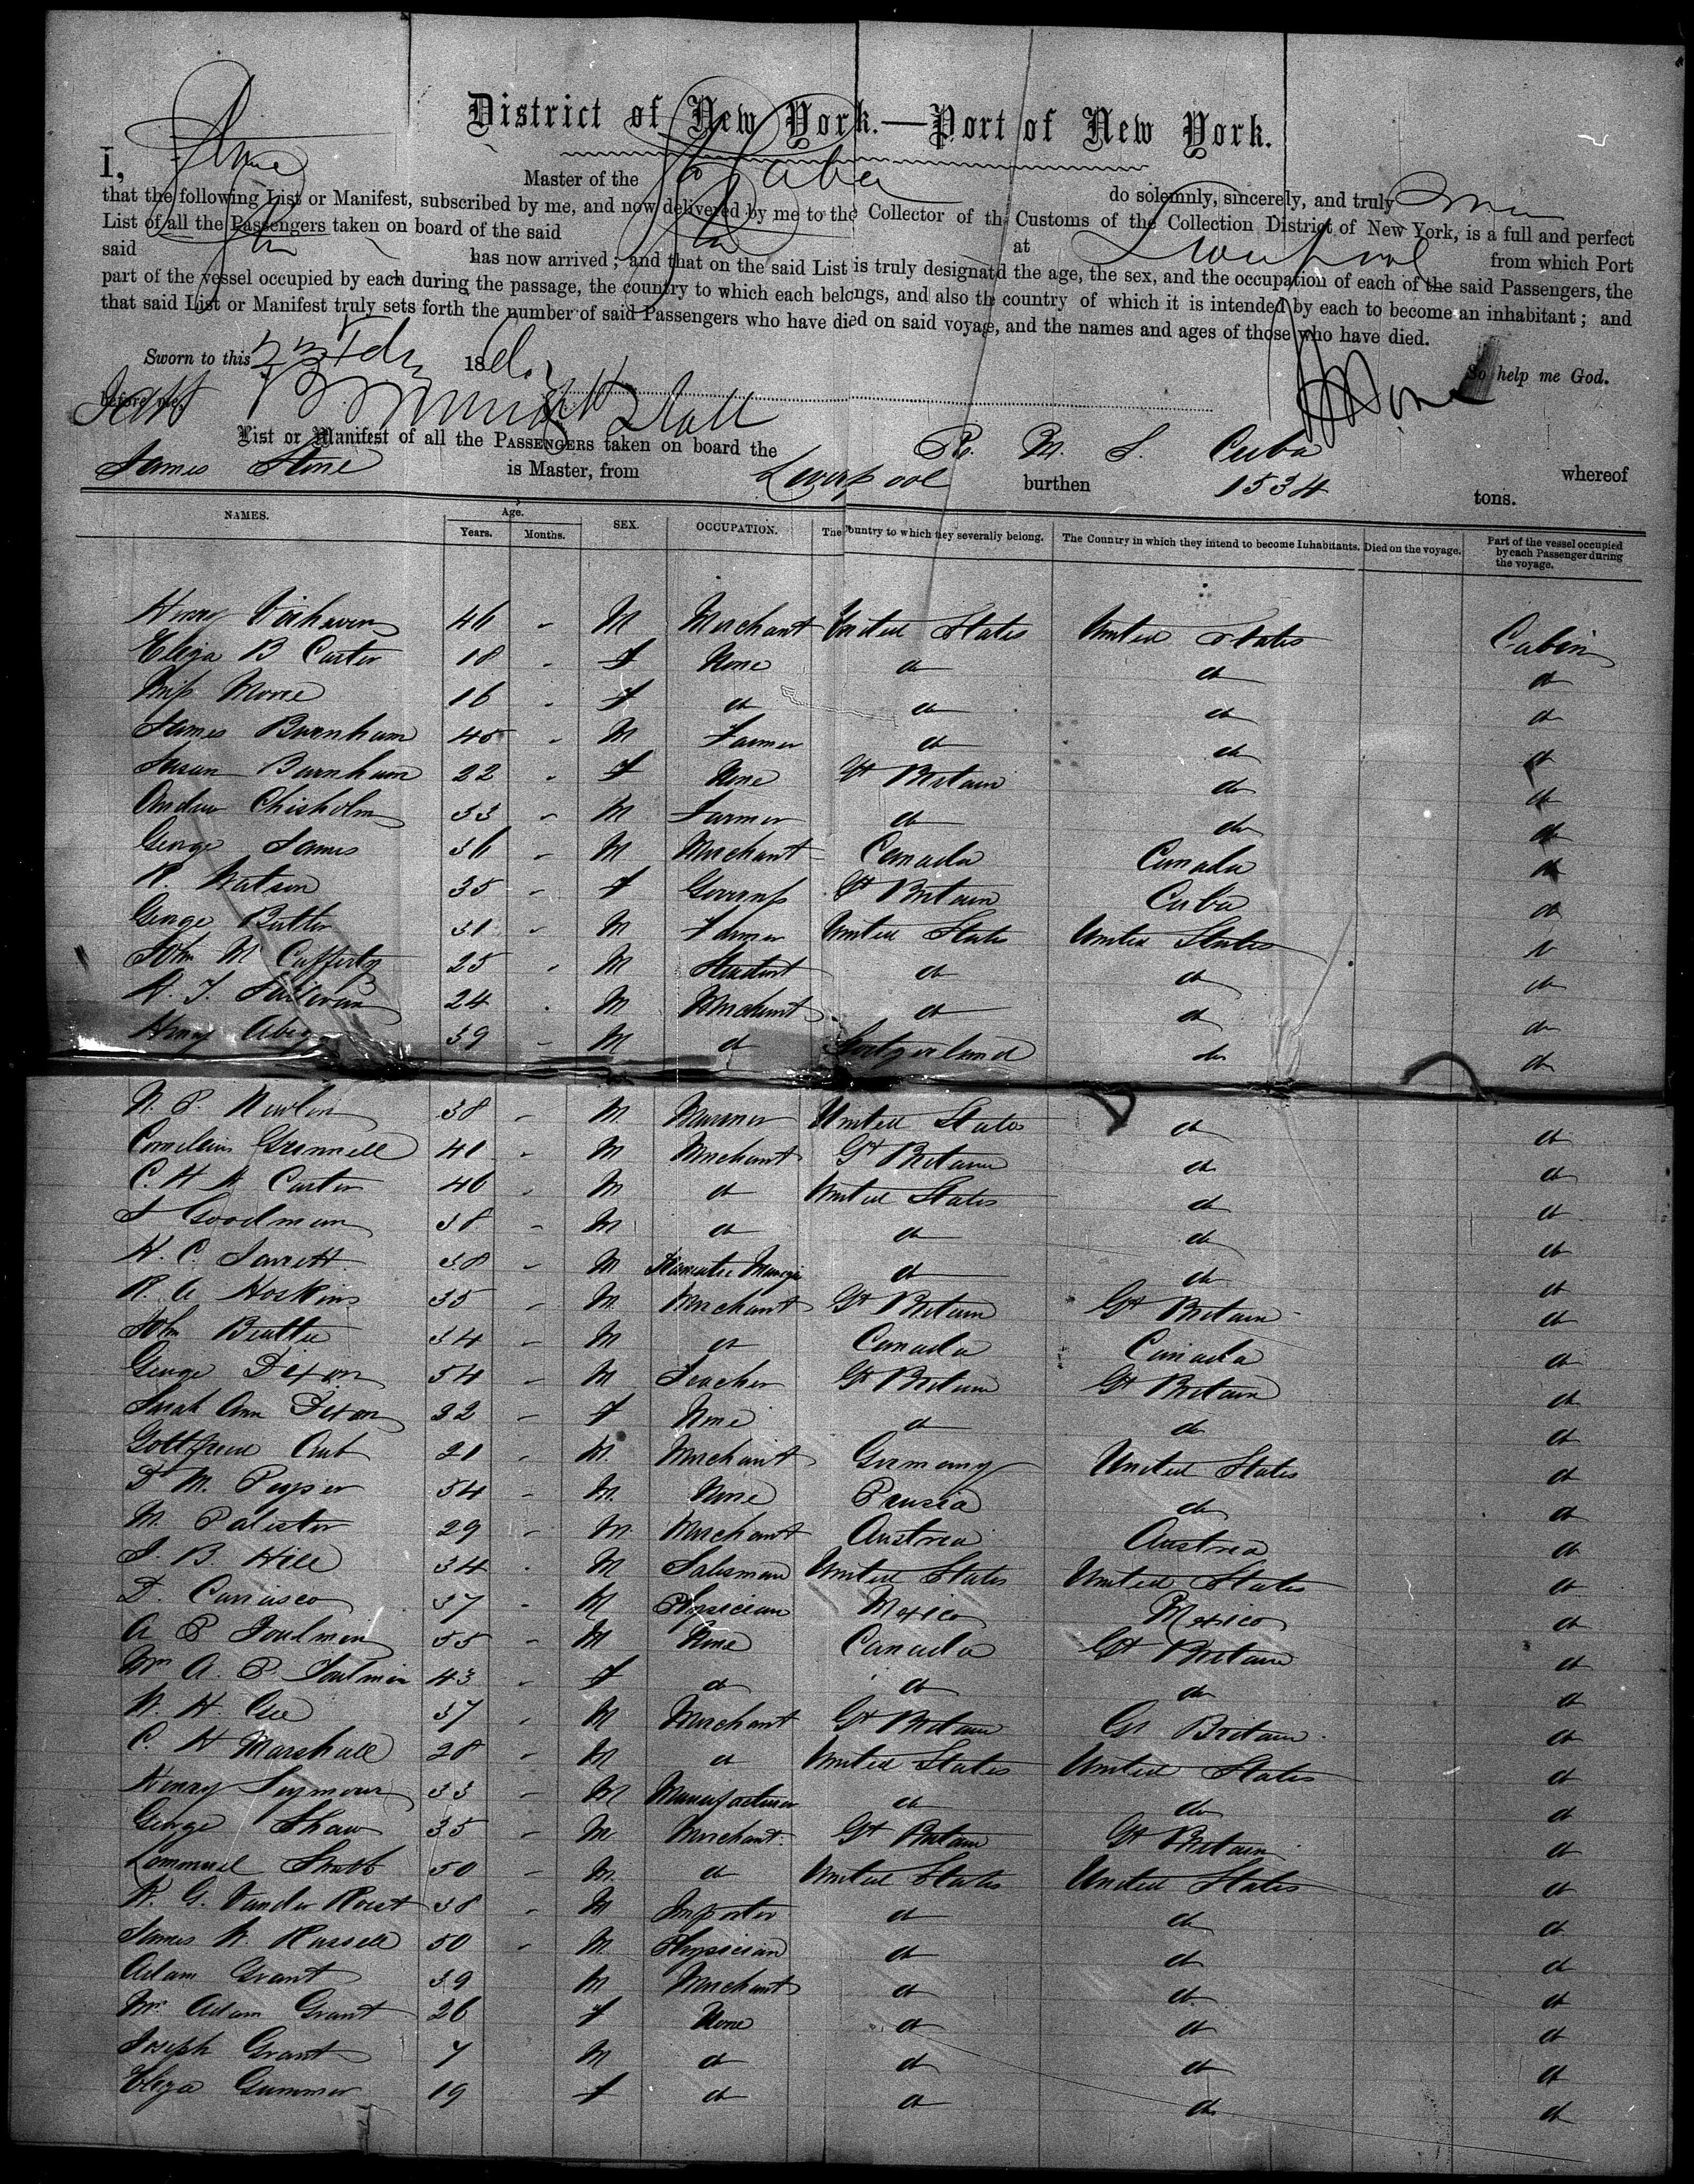 District of New York.—Port of New York.
I, Stone Master of the Cuba do solemnly, sincerely, and truly
that the following List or Manifest, subscribed by me, and now delivered by me to the Collector of the Customs of the Collection District of New York, is a full and perfect
List of all the Passengers taken on board of the said at Liverpool from which Port
said has now arrived; and that on the said List is truly designated the age, the sex, and the occupation of each of the said Passengers, the
part of the vessel occupied by each during the passage, the country to which each belongs, and also the country of which it is intended by each to become an inhabitant; and
that said List or Manifest truly sets forth the number of said Passengers who have died on said voyage, and the names and ages of those who have died.
Sworn to this 186 So help me God.
before me,
List or Manifest of all the PASSENGERS taken on board the R. M. S. Cuba whereof
James Stone is Master, from Liverpool burthen 1534 tons.
NAMES. Age. Years. Months. SEX. OCCUPATION. The Country to which they severally belong. The Country in which they intend to become Inhabitants. Died on the voyage. Part of the vessel occupied by each Passenger during the voyage.
46 - M Merchant United States United States Cabin
Eliza B Carter 18 - F None do do do
Miss Morse 16 - F do do do do
James Burnham 45 - M Farmer do do do
Susan Burnham 22 - F None Gt Britain do do
Andrew Chisholm 33 - M Farmer do do do
George James 36 - M Merchant Canada Canada do
R. Watson 35 - F Governess Gt Britain Cuba do
George Butler 31 - M Farmer United States United States do
John McCafferty 25 - M Student do do do
Sullivan 24 - M Merchant do do do
Henry 39 - M do Switzerland do do
Newlin 38 - M Mariner United States do do
Cornelius Grinnell 41 - M Merchant Gt Britain do do
C. H. A Carter 46 - M do United States do do
Goodman 38 - M do do do do
H. C. Jarrett 38 - M do do do
R. A Hoskins 35 - M Merchant Gt Britain Gt Britain do
John Beattie 34 - M do Canada Canada do
George Dixon 54 - M Teacher Gt Britain Gt Britain do
Sarah Ann Dixon 32 - F None do do do
21 - M Merchant Germany United States do
54 - M None Prussia do do
M. 29 - M Merchant Austria Austria do
J. B. Hill 34 - M Salesman United States United States do
D. Carrasco 37 - M Physician Mexico Mexico do
A P Toulmin 55 - M None Canada Gt Britain do
Mrs A. P. Toulmin 43 - F do do do do
W. H. Gee 37 - M Merchant Gt Britain Gt Britain do
C. H Marshall 28 - M do United States United States do
Henry Seymour 33 - M Manufacturer do do do
George Shaw 35 - M Merchant Gt Britain Gt Britain do
50 - M do United States United States do
38 - M Importer do do do
James W. Russell 50 - M Physician do do do
Adam Grant 39 M Merchant do do do
Mrs Adam Grant 26 F None do do do
Joseph Grant 7 M do do do do
Eliza Gummer 19 F do do do do